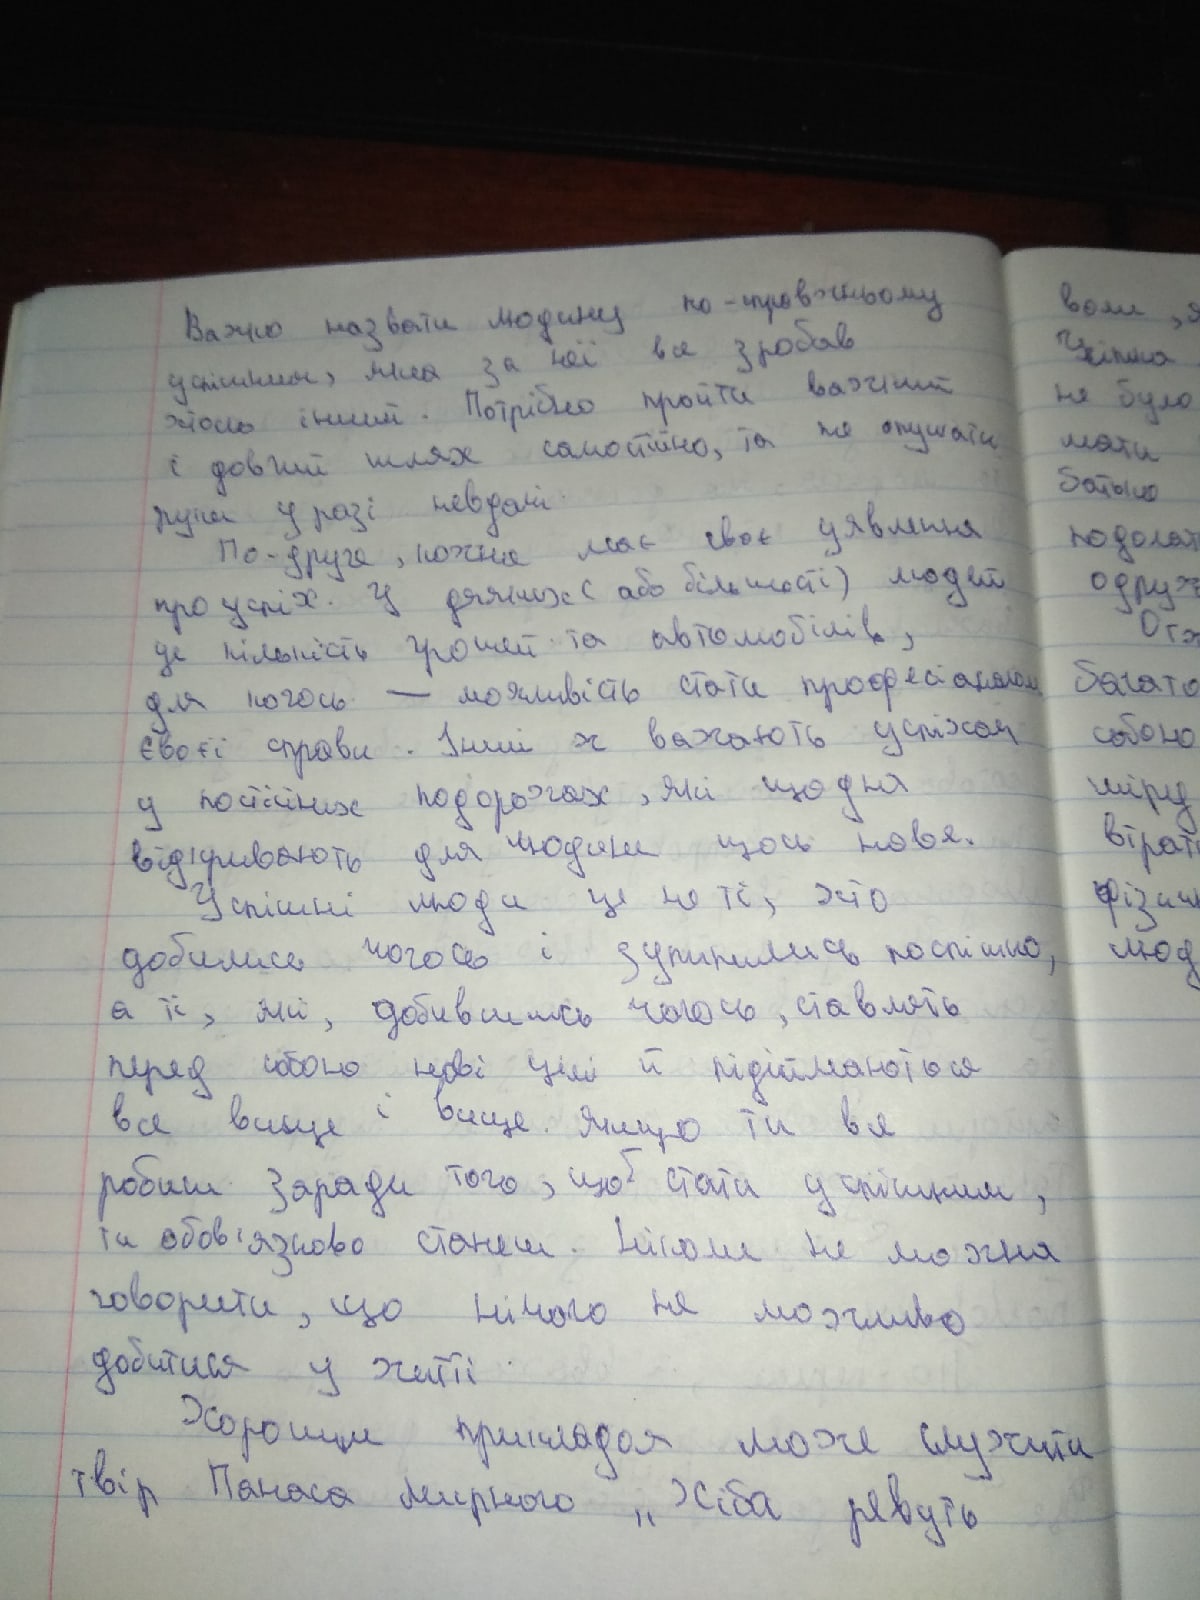 Важко назвати людину по-справжньому
успішною, яка за неї все зробив
хтось інший. Потрібно пройти важкий
і довгий шлях самостійно, та не опускати
руки у разі невдачі.
По-друге, кожна має своє уявлення
про успіх. У деяких (або більшості) людей
це кількість грошей та автомобілів,
для когось — можливість стати професіоналом
своєї справи. Інші ж вважають успіхом
у постійних подорожах, які щодня
відкривають для людини щось нове.
Успішні люди це не ті, хто
добились чогось і зупинились поспішно,
а ті, які, добившись чогось, ставлять
перед собою нові цілі й підіймаються
все вище і вище. Якщо ти все
робиш заради того, щоб стати успішним,
ти обов'язково станеш. Ніколи не можна
говорити, що нічого не можливо
добитися у житті.
Хорошим прикладом може служити
твір Панаса Мирного „Хіба ревуть
воли, я
Чіпка
не було
мати
батько
подолат
одруж
Отж
багато
собою
міру
втрат
фізич
люд